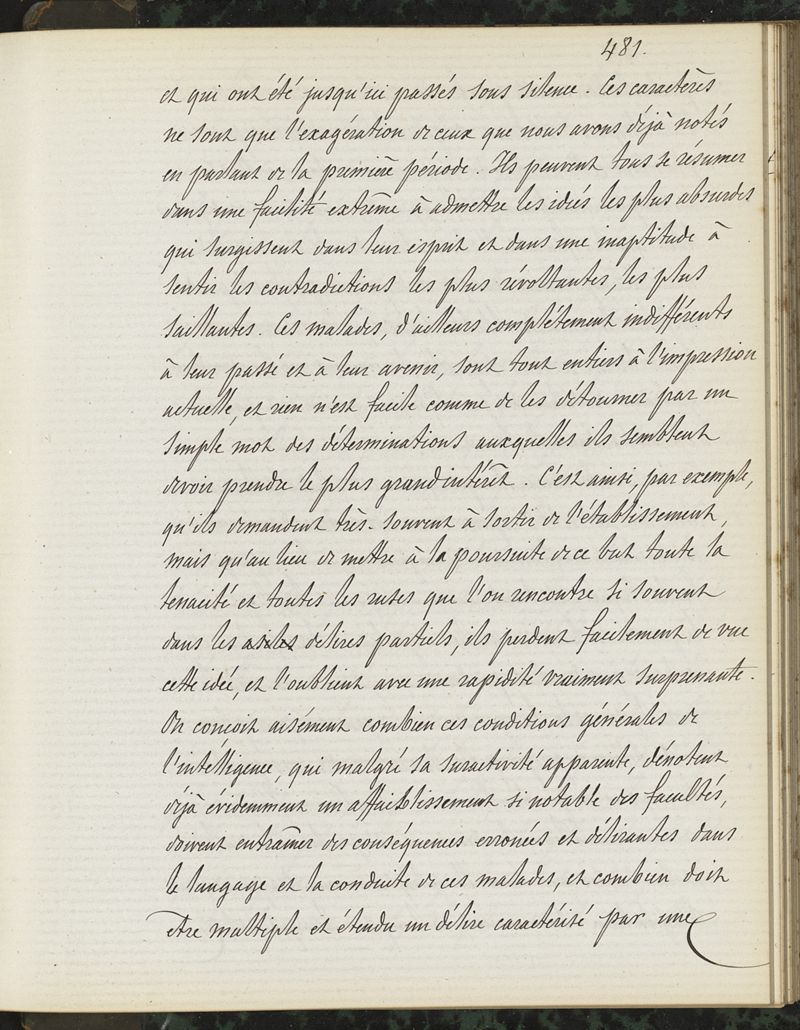 481.
et qui ont été jusqu'ici passés sous silence. Ces caractères
ne sont que l'exagération de ceux que nous avons déjà notés
en parlant de la première période. Ils peuvent tous se résumer
dans une facilité extrême à admettre les idées les plus absurdes
qui surgissent dans leur esprit et dans une inaptitude à
sentir les contradictions les plus révoltantes, les plus
saillantes. Ces malades, d'ailleurs complétement indifférents
à leur passé et à leur avenir, sont tout entiers à l'impression
actuelle, et rien n'est facile comme de les détourner par un
simple mot des déterminations auxquelles ils semblent
devoir prendre le plus grand intérêt. C'est ainsi, par exemple,
qu'ils demandent très-souvent à sortir de l'établissement,
mais qu'au lieu de mettre à la poursuite de ce but toute la
tenacité et toutes les ruses que l'on rencontre si souvent
dans les asiles délires partiels, ils perdent facilement de vue
cette idée, et l'oublient avec une rapidité vraiment surprenante.
On conçoit aisément combien ces conditions générales de
l'intelligence, qui malgré sa suractivité apparente, dénotent
déjà évidemment un affaiblissement si notable des facultés,
doivent entraîner des conséquences erronées et délirantes dans
le langage et la conduite de ces malades, et combien doit
etre multiple et étendu un délire caractérisé par une